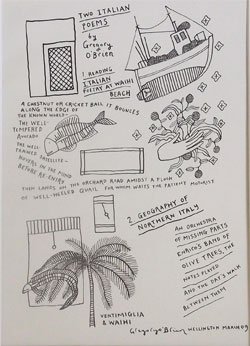 TWO ITALIAN
POEMS
by
Gregory
O'BRIEN
1 READING
ITALIAN
POETRY AT WAIHI
BEACH
A CHESTNUT OR CRICKET BALL, IT BOUNCES
ALONG THE EDGE OF
THE KNOWN WORLD—
THE WELL-
TEMPERED
AVOCADO
THE WELL-
TRAINED SATELLITE—
HOVERS IN THE MIND
BEFORE RE-ENTRY
THEN LANDS ON THE ORCHARD ROAD AMIDST A FLUSH
OF WELL-HEELED QUAIL FOR WHOM WAITS THE PATIENT MOTORIST
2 GEOGRAPHY OF
NORTHERN ITALY
AN ORCHESTRA
OF MISSING PARTS
ENRICO'S BAND OF
OLIVE TREES, THE
NOTES PLAYED
AND THE DAYS WALK
BETWEEN THEM
VENTIMIGLIA
& WAIHI
Gregory O'Brien WELLINGTON MARCH 09